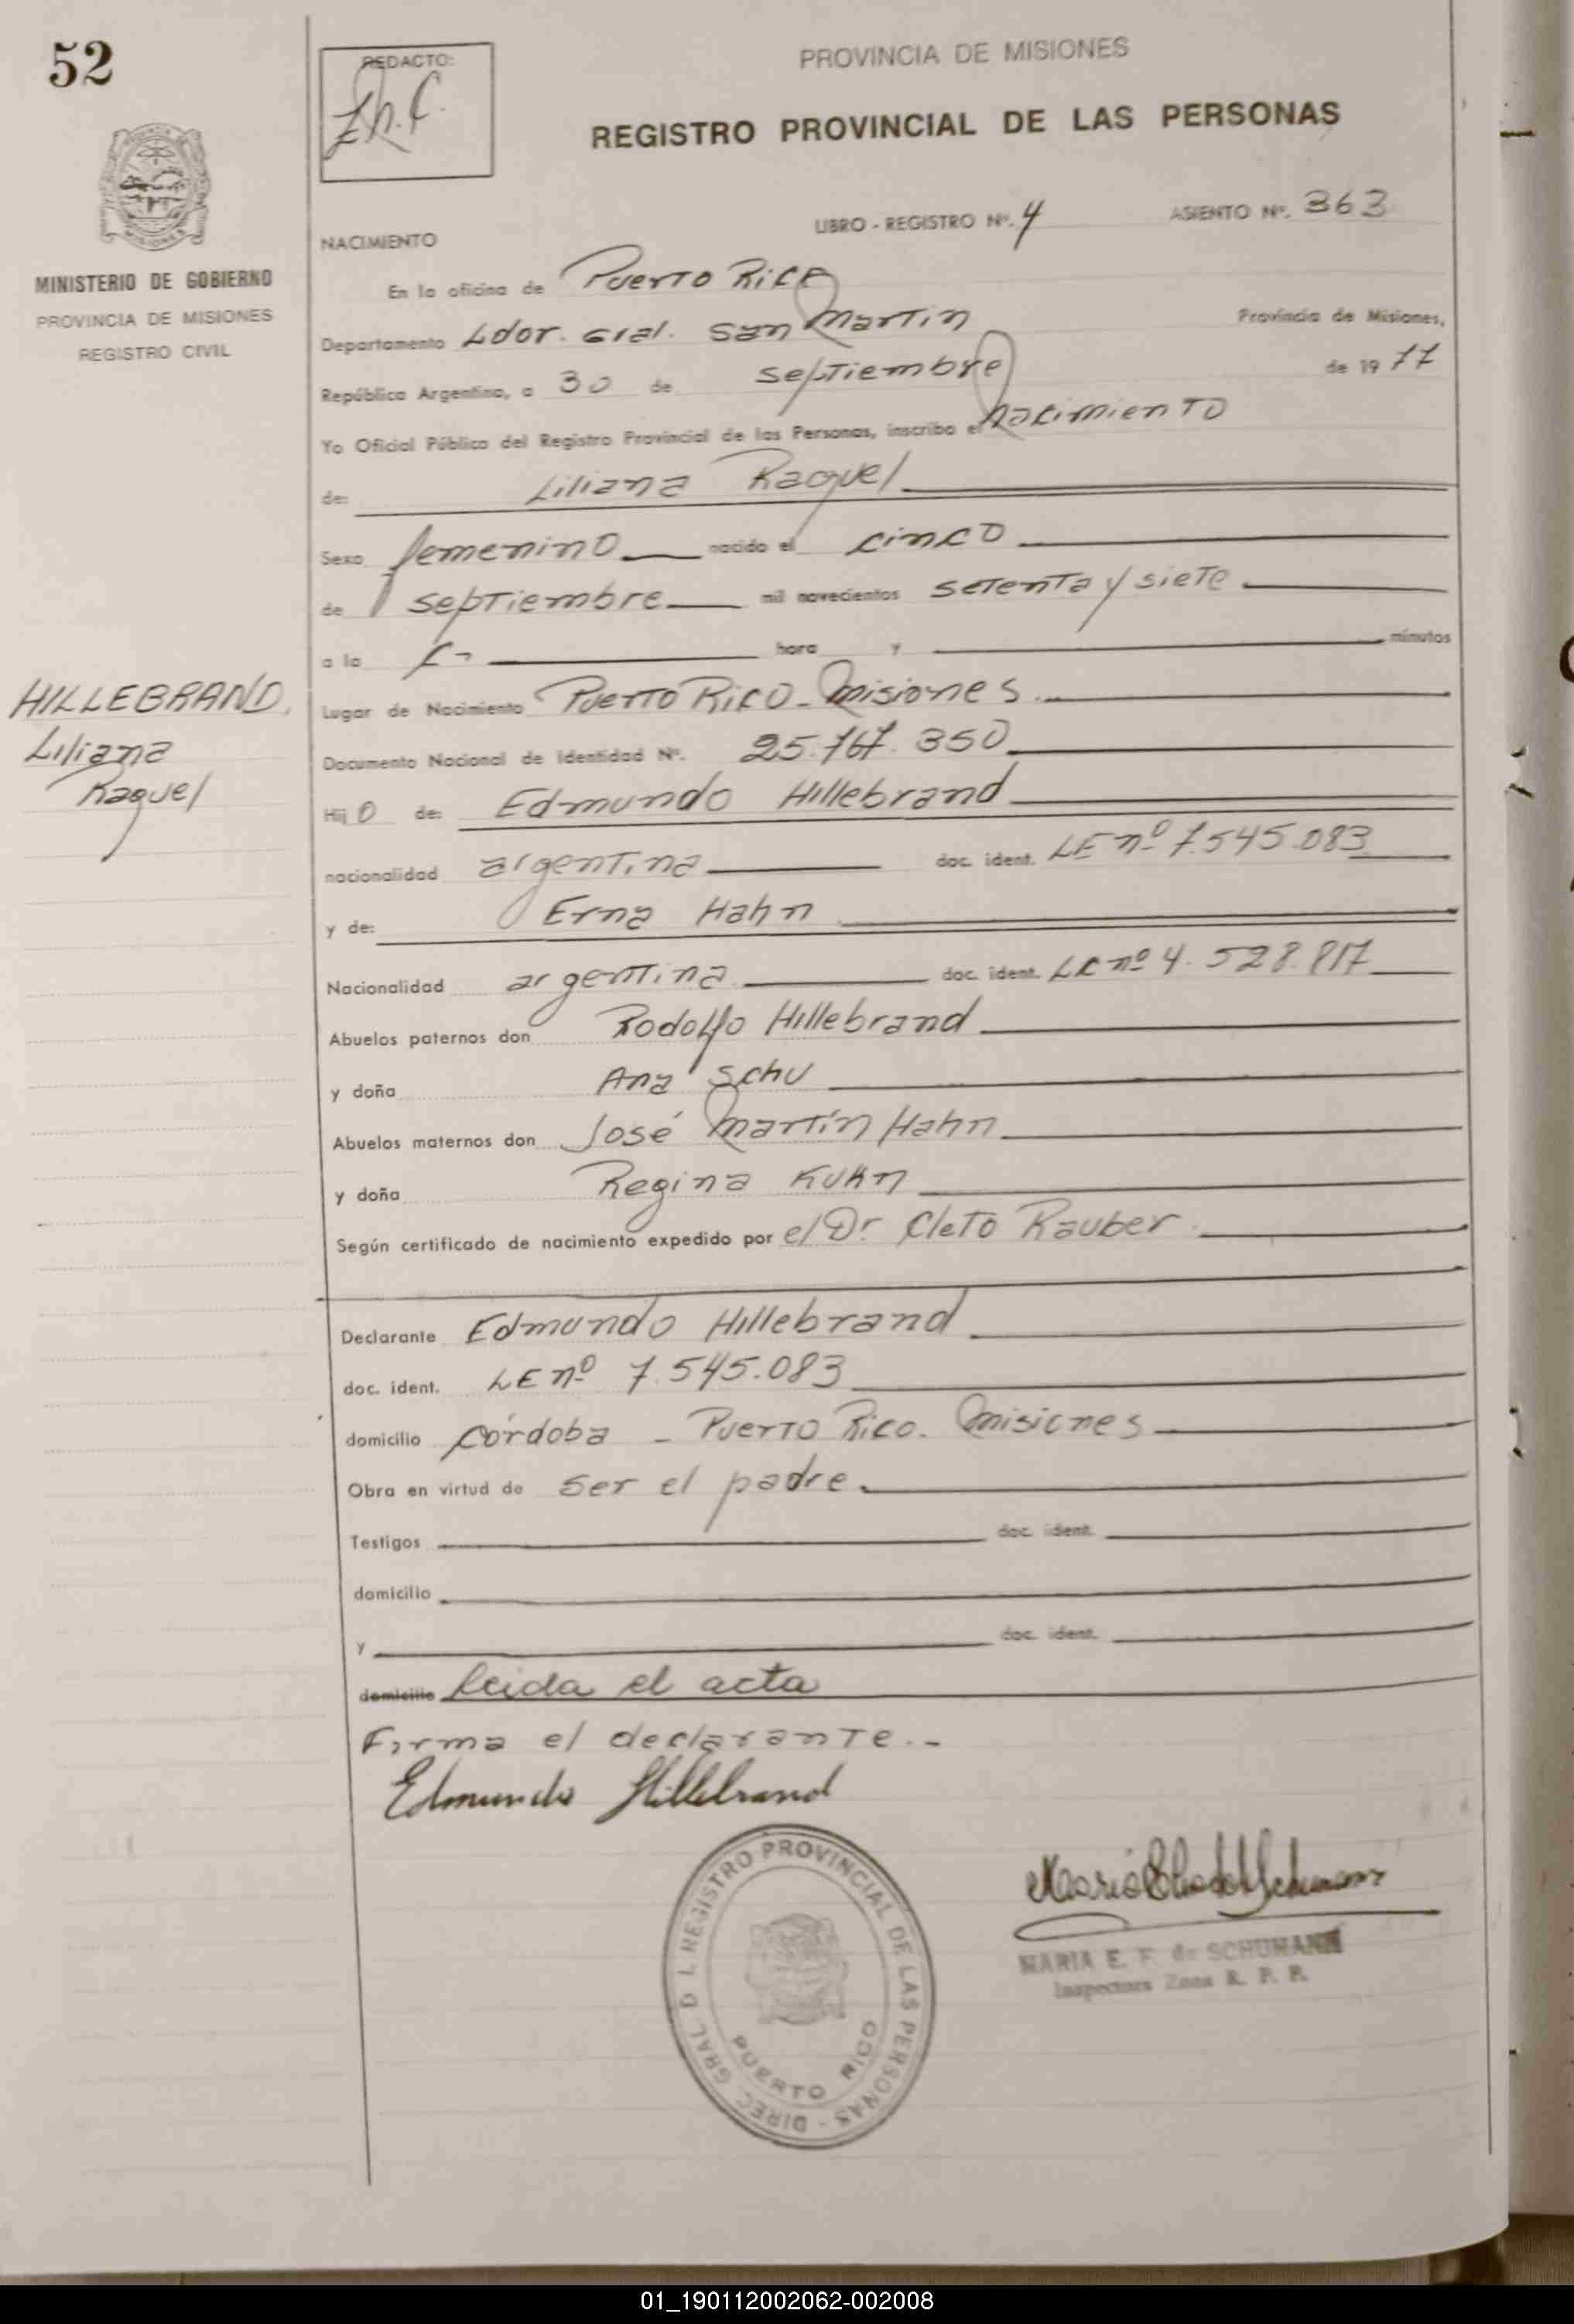 52
REDACTO:
PROVINCIA DE MISIONES
REGISTRO PROVINCIAL DE LAS PERSONAS
LIBRO - REGISTRO Nº. 4 ASIENTO Nº. 363
MINISTERIO DE GOBIERNO
PROVINCIA DE MISIONES
REGISTRO CIVIL
NACIMIENTO
En la oficina de Puerto Rico
Departamento Ldor. Gral. San Martín Provincia de Misiones,
República Argentina, a 30 de septiembre de 1977
Yo Oficial Público del Registro Provincial de las Personas, inscribo el nacimiento
de: Liliana Raquel
Sexo femenino nacido el cinco
de septiembre mil novecientos setenta y siete
a la hora y minutos
HILLEBRAND,
Liliana
Raquel
Lugar de Nacimiento Puerto Rico - Misiones
Documento Nacional de Identidad Nº. 25.767.350
Hij o de: Edmundo Hillebrand
nacionalidad argentina doc. ident. LE nº 7545.083
y de: Erna Hahn
Nacionalidad argentina doc. ident. LC nº 4.528.817
Abuelos paternos don Rodolfo Hillebrand
y doña Ana Schu
Abuelos maternos don José Martín Hahn
y doña Regina Kuhn
Según certificado de nacimiento expedido por el Dr. Cleto Rauber
Declarante Edmundo Hillebrand
doc. ident. LE nº 7.545.083
domicilio Córdoba - Puerto Rico. Misiones
Obra en virtud de ser el padre.
Testigos doc. ident.
domicilio
y doc. ident.
domicilio leida el acta
Firma el declarante.-
Edmundo Hillebrand
DIREC. GRAL D L REGISTRO PROVINCIAL DE LAS PERSONAS -
PUERTO RICO
MARIA E. F. de SCHUMANN
Inspectora Zona R. P. P.
01_190112002062-002008